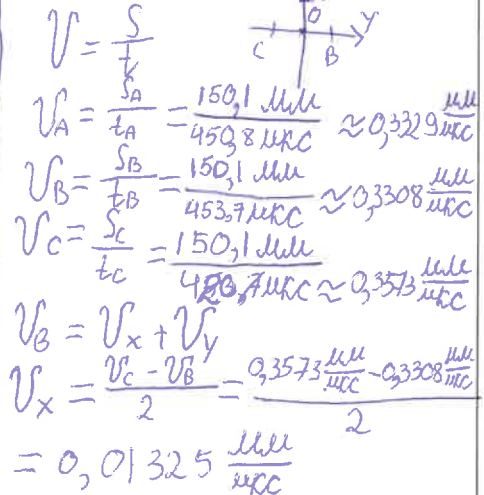 V = S/t
O
y
C
B
V_A = S_A/t_A = 150,1 мм/450,8 мкс ≈ 0,3329 мм/мкс
V_B = S_B/t_B = 150,1 мм/453,7 мкс ≈ 0,3308 мм/мкс
V_C = S_C/t_C = 150,1 мм/420,1 мкс ≈ 0,3573 мм/мкс
V_B = V_x + V_y
V_x = (V_C - V_B)/2 = (0,3573 мм/мкс - 0,3308 мм/мкс)/2
= 0,01325 мм/мкс